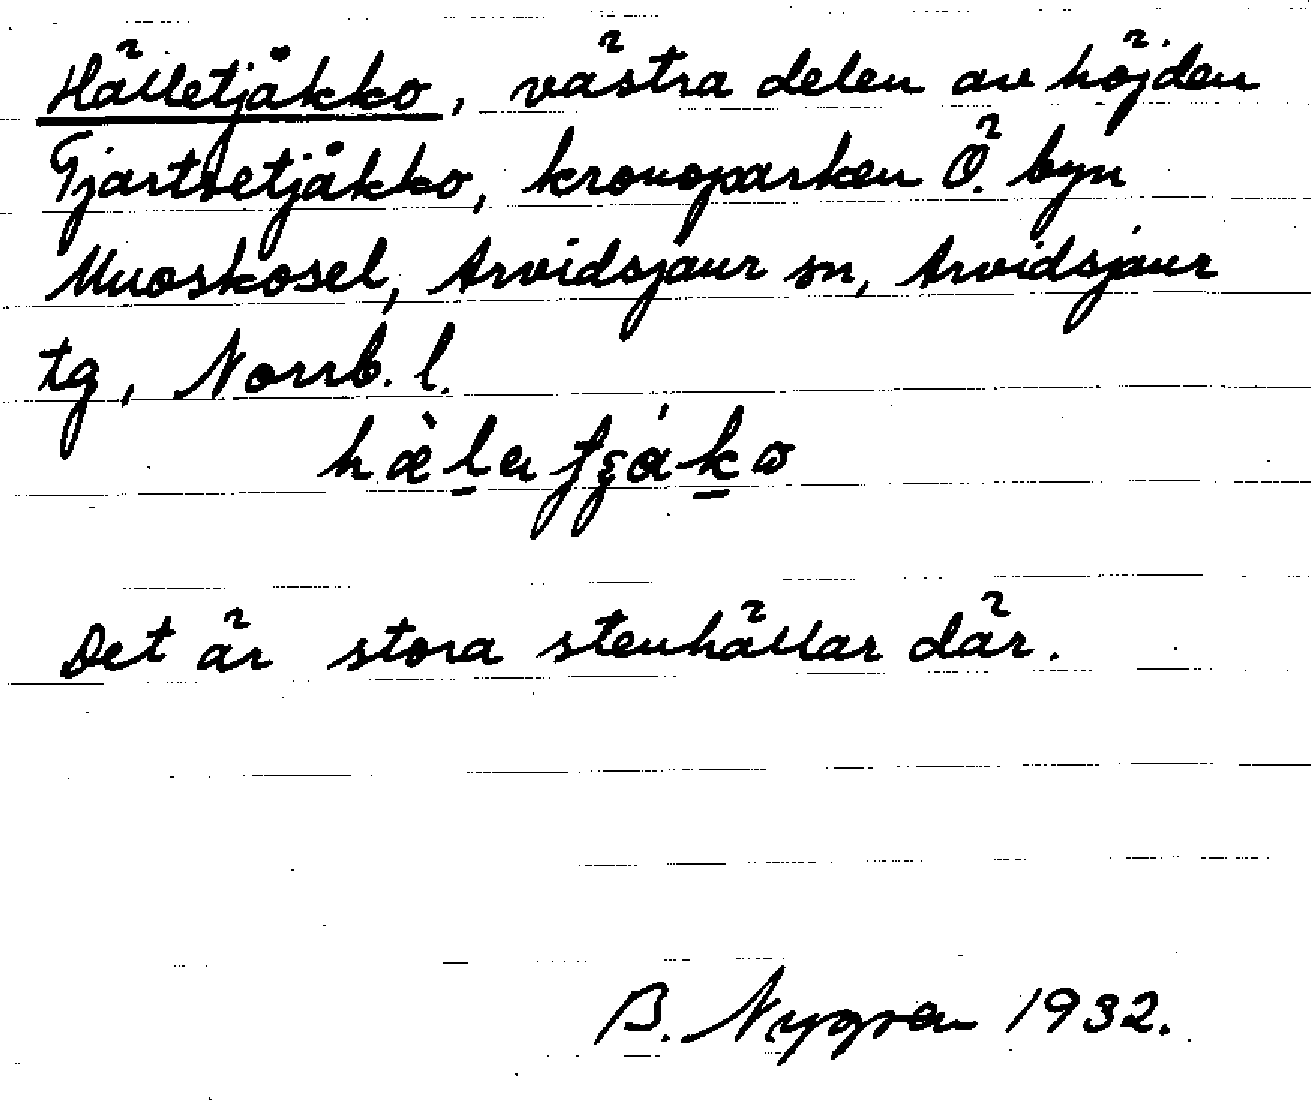 Hälletjåkko, västra delen av höjden
Tjartsetjåkko, kronoparken Ö. byn
Muoskosel, Arvidsjaur sn, Arvidsjaur
tg, Norrb. l.
Det är stora stenhällar där.
B. Nygren 1932.